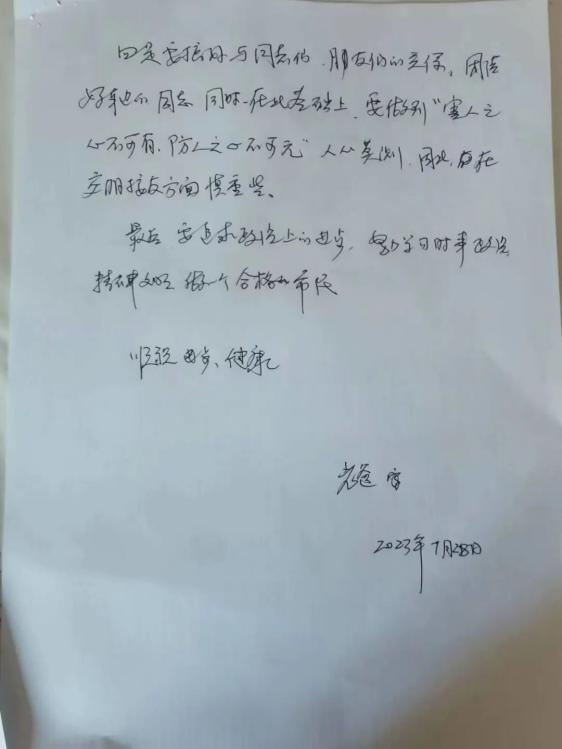 四是要接好与同志们、朋友们的关系。团结
好身边的同志 同时在此基础上，要做到“害人之
心不可有，防人之心不可无”人心莫测，因此，在
交朋接友方面慎重些。
最后 要追求政治上的进步，努力学习时事政治
精神文明 做一个合格的市民
顺祝 进步、健康
老爸 字
2023年7月28日